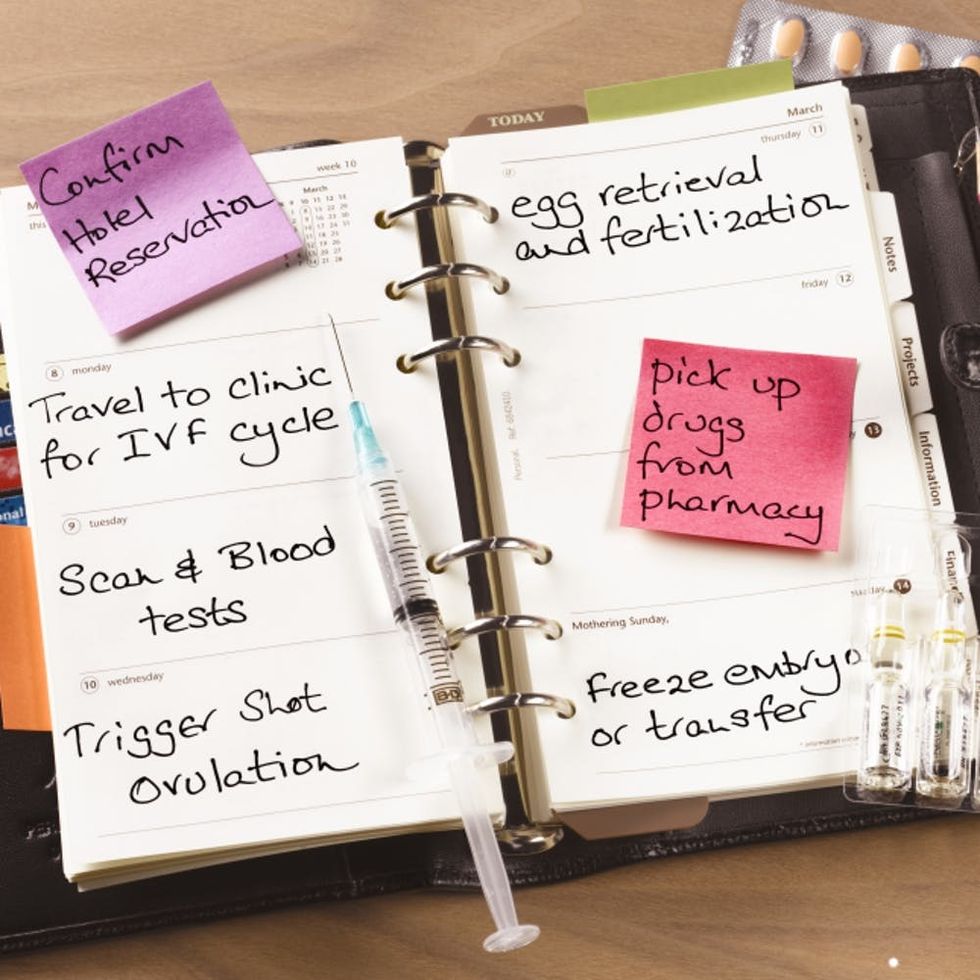 Confirm
Hotel
Reservation
week 10
March
8 monday
Travel to clinic
for IVF cycle
9 tuesday
Scan & Blood
tests
10 wednesday
Trigger Shot
Ovulation
TODAY
March
thursday 11
egg retrieval
and fertilization
friday 12
pick up
drugs
from
pharmacy
13
14
Mothering Sunday,
Freeze embryo
or transfer
Notes
Projects
Information
B-D